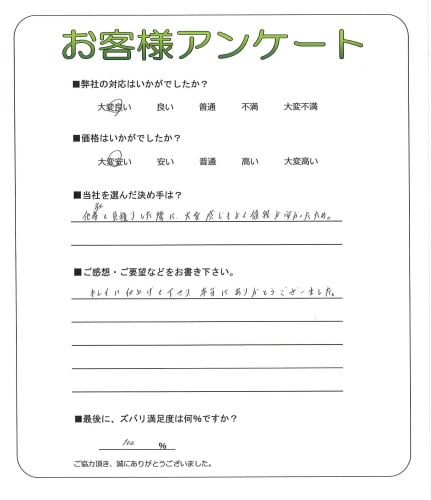 お客様アンケート
■弊社の対応はいかがでしたか?
大変良い 良い 普通 不満 大変不満
■価格はいかがでしたか?
大変安い 安い 普通 高い 大変高い
■当社を選んだ決め手は?
見積りした際に、大変感じもよく値段が安かったため。
■ご感想・ご要望などをお書き下さい。
キレイに仕上げて下さり 本当にありがとうございました。
■最後に、ズバリ満足度は何%ですか?
100 %
ご協力頂き、誠にありがとうございました。